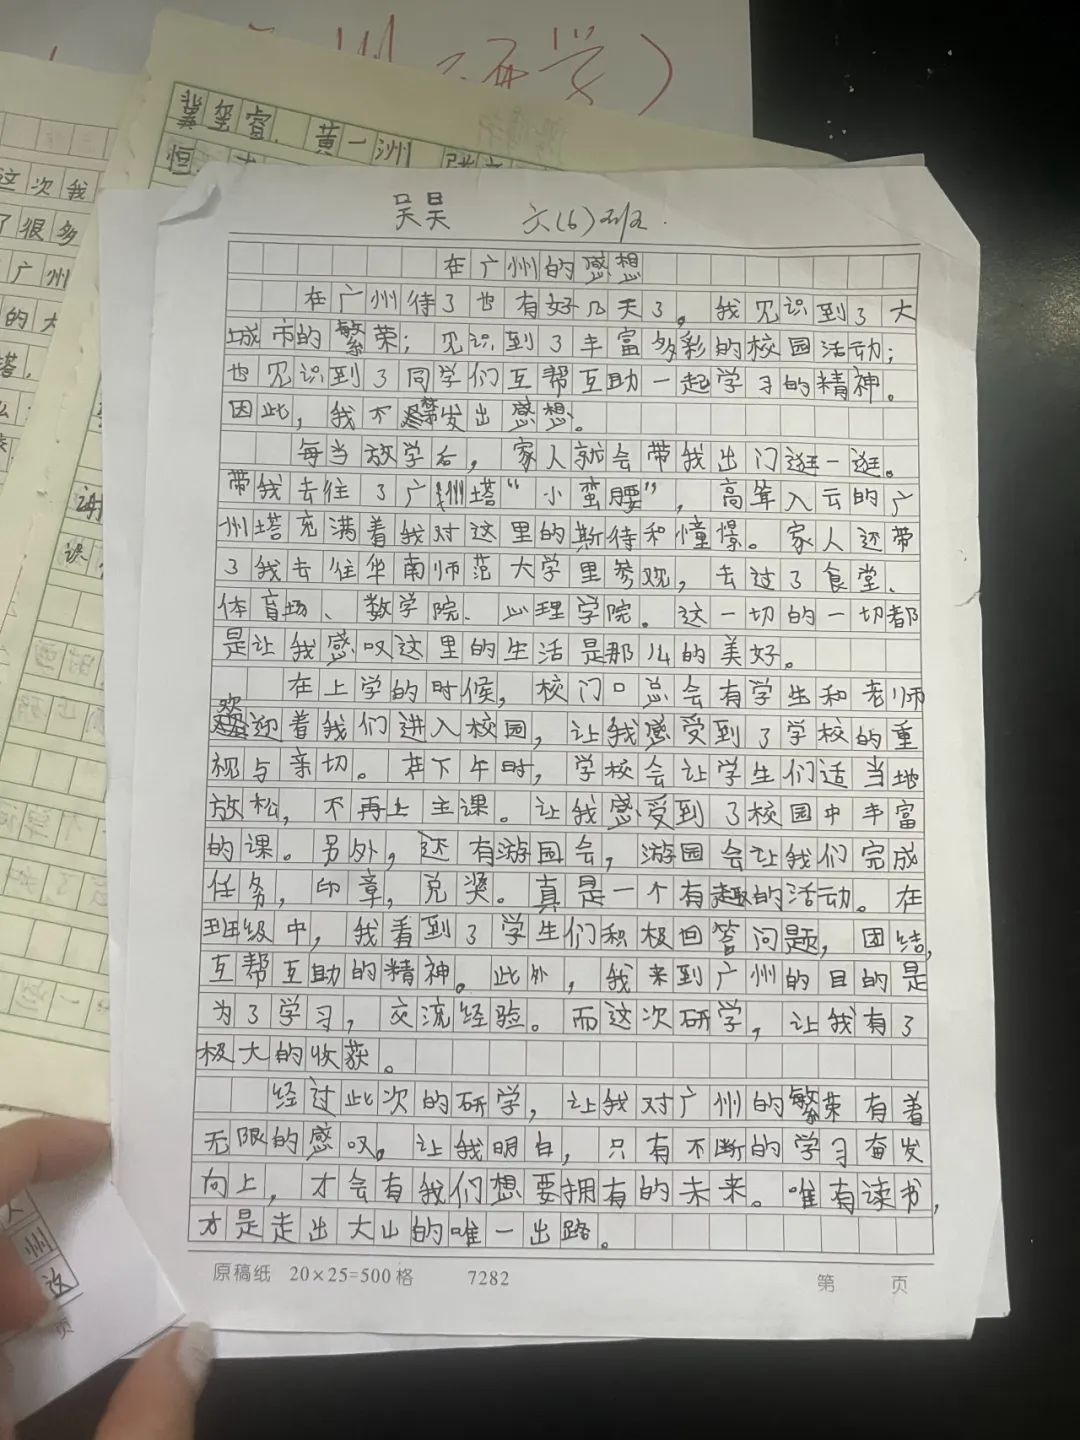 州研学）
冀玺睿 黄一洲
恒
这次我
了很多
广州
的大
塔，
识
吴昊 六(6)班
在广州的感想
在广州待了也有好几天了。我见识到了大
城市的繁荣；见识到了丰富多彩的校园活动；
也见识到了同学们互帮互助一起学习的精神。
因此，我不禁发出感想。
每当放学后，家人就会带我出门逛一逛。
带我去往了广州塔“小蛮腰”，高耸入云的广
州塔充满着我对这里的斯待和憧憬。家人还带
了我去往华南师范大学里参观，去过了食堂、
体育场、数学院、心理学院。这一切的一切都
是让我感叹这里的生活是那儿的美好。
在上学的时候，校门口总会有学生和老师
欢迎着我们进入校园，让我感受到了学校的重
视与亲切。在下午时，学校会让学生们适当地
放松，不再上主课。让我感受到了校园中丰富
的课。另外，还有游园会，游园会让我们完成
任务，印章，兑奖。真是一个有趣的活动。在
班级中，我看到了学生们积极回答问题，团结，
互帮互助的精神。此外，我来到广州的目的是
为了学习，交流经验。而这次研学，让我有了
极大的收获。
经过此次的研学，让我对广州的繁荣有着
无限的感叹。让我明白，只有不断的学习奋发
向上，才会有我们想要拥有的未来。唯有读书，
才是走出大山的唯一出路。
原稿纸 20×25=500格 7282 第 页
州
这
页